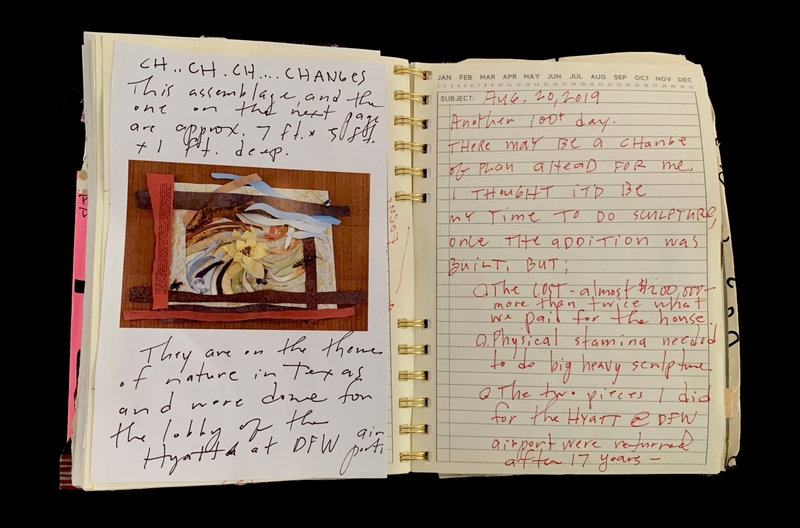 CH..CH.CH....CHANGES
This assemblage, and the
one on the next page
are approx. 7 ft. x 5 ft.
x 1 ft. deep.
They are on the theme
of nature in Texas
and were done for
the lobby of the
Hyatt at DFW air
port.
JAN FEB MAR APR MAY JUN JUL AUG SEP OCT NOV DEC
SUBJECT: AUG. 20, 2019
Another 100+ day.
THERE MAY BE A CHANGE
OF PLAN AHEAD FOR ME.
I THOUGHT IT'D BE
MY TIME TO DO SCULPTURE,
ONCE THE ADDITION WAS
BUILT. BUT;
The COST - almost $200,000 -
more than twice what
we paid for the house.
Physical stamina needed
to do big heavy sculpture
The two pieces I did
for the HYATT @ DFW
airport were returned
after 17 years -